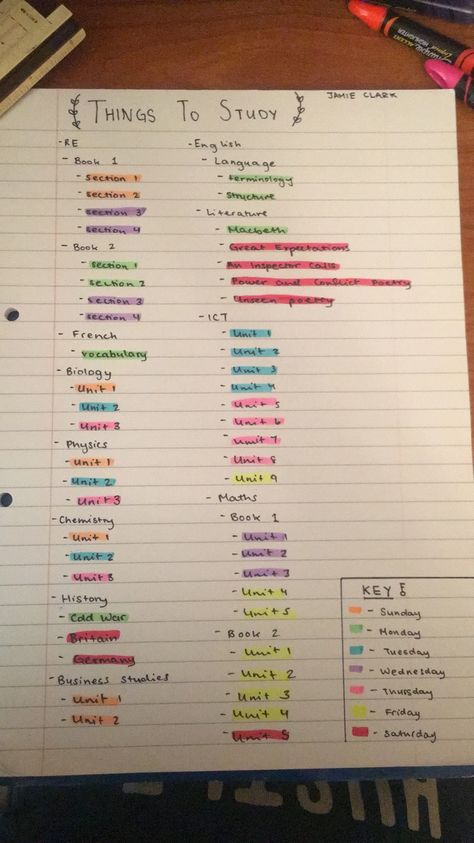 JAMIE CLARK
THINGS TO STUDY
- RE
- Book 1
- section 1
- section 2
- section 3
- section 4
- Book 2
- section 1
- section 2
- section 3
- section 4
- French
- vocabulary
- Biology
- Unit 1
- Unit 2
- Unit 3
- Physics
- Unit 1
- Unit 2
- Unit 3
- Chemistry
- Unit 1
- Unit 2
- Unit 3
- History
- Cold War
- Britain
- Germany
- Business studies
- Unit 1
- Unit 2
- English
- Language
- terminology
- structure
- Literature
- Macbeth
- Great Expectations
- An Inspector Calls
- Power and Conflict Poetry
- Unseen poetry
- ICT
- Unit 1
- Unit 2
- Unit 3
- Unit 4
- Unit 5
- Unit 6
- Unit 7
- Unit 8
- Unit 9
- Maths
- Book 1
- Unit 1
- Unit 2
- Unit 3
- Unit 4
- Unit 5
- Book 2
- Unit 1
- Unit 2
- Unit 3
- Unit 4
- Unit 5
KEY
- Sunday
- Monday
- Tuesday
- Wednesday
- Thursday
- Friday
- Saturday